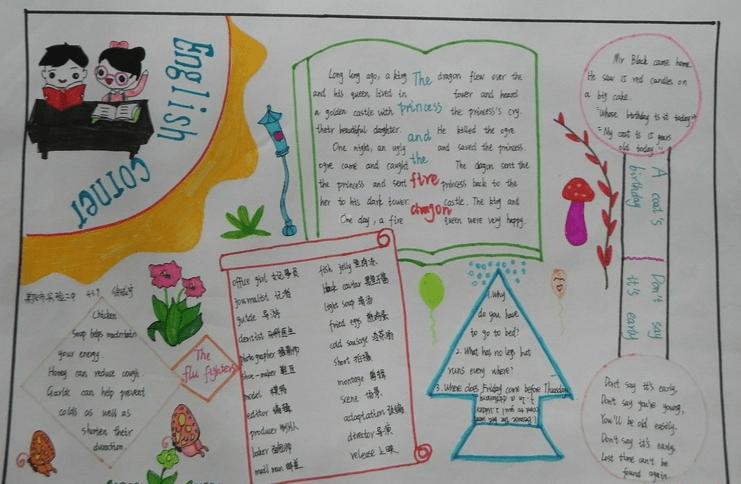 English
corner
Long long ago, a king
and his queen lived in
a golden castle with
their beautiful daughter.
One night, an ugly
ogre came and caught
the princess and sent
her to his dark tower.
One day, a fire
The
princess
and
the
fire
dragon
dragon flew over the
tower and heard
the princess's cry.
He killed the ogre
and saved the princess.
The dragon sent the
princess back to the
castle. The king and
queen were very happy.
Mr Black came home.
He saw 15 red candles on
a big cake.
"Whose birthday is it today?"
"My coat is 15 years
old today."
A coat's
birthday
Don't say
it's early
Don't say it's early,
Don't say you're young,
You'll be old easily.
Don't say it's early,
Lost time can't be
found again.
Chicken
soup helps
your energy.
Honey can reduce cough.
Garlic can help prevent
colds as well as
shorten their
duration.
The
flu fighters
office girl 女记事员
journalist 记者
guide 导游
dentist 牙科医生
photographer 摄影师
shoe-maker 鞋匠
model 模特
editor 编辑
producer 制片人
baker 面包师
mail man 邮差
fish jelly 鱼肉冻
black caviar 黑鱼子酱
light soup 清汤
fried eggs 煎鸡蛋
cold sausage 冷茶肠
short 短片
montage 剪辑
scene 场景
adaptation 改编
director 导演
release 上映
1. Why
do you have
to go to bed?
2. What has no legs but
runs every where?
3. Where does Friday come before Thursday